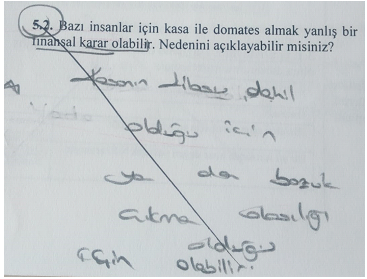 5.2. Bazı insanlar için kasa ile domates almak yanlış bir
finansal karar olabilir. Nedenini açıklayabilir misiniz?
Kasanın darası dahil
olduğu için
ya da bozuk
çıkma olasılığı
olduğu
için olabilir.